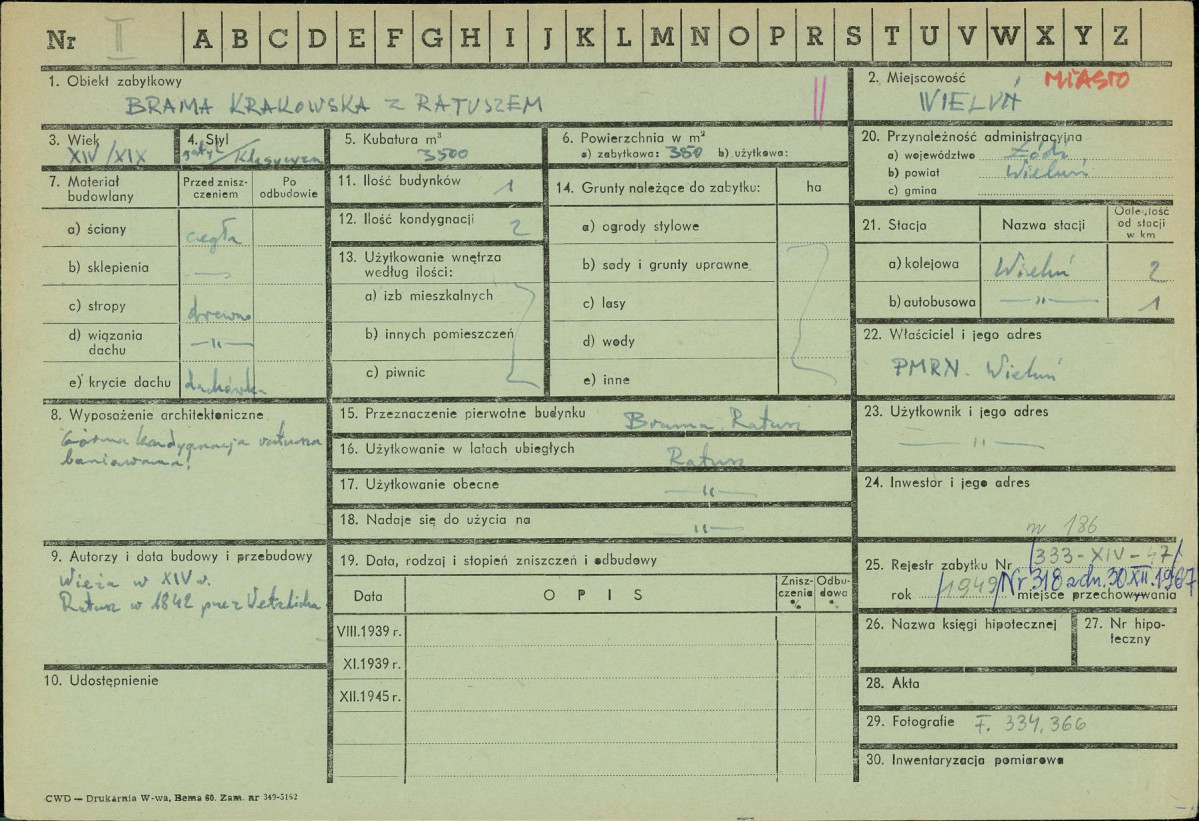 Nr I A B C D E F G H I J K L M N O P R S T U V W X Y Z
1. Obiekt zabytkowy
BRAMA KRAKOWSKA Z RATUSZEM
2. Miejscowość MIASTO
WIELUŃ
3. Wiek
XIV/XIX
4. Styl
gotyk/klasyczn
5. Kubatura m³
3500
6. Powierzchnia w m²
a) zabytkowa: 380 b) użytkowa:
20. Przynależność administracyjna
a) województwo Łódź
b) powiat Wieluń
c) gmina
7. Materiał budowlany
Przed zniszczeniem
Po odbudowie
a) ściany cegła
b) sklepienia —
c) stropy drewno
d) wiązania dachu —"—
e) krycie dachu dachówka
11. Ilość budynków 1
12. Ilość kondygnacji 2
13. Użytkowanie wnętrza
według ilości:
a) izb mieszkalnych
b) innych pomieszczeń
c) piwnic
14. Grunty należące do zabytku: ha
a) ogrody stylowe
b) sady i grunty uprawne
c) lasy
d) wody
e) inne
21. Stacja Nazwa stacji Odległość od stacji w km
a) kolejowa Wieluń 2
b) autobusowa —"— 1
22. Właściciel i jego adres
PMRN. Wieluń
8. Wyposażenie architektoniczne
Górna kondygnacja ratusza
boniowana!
15. Przeznaczenie pierwotne budynku Brama Ratusz
16. Użytkowanie w latach ubiegłych Ratusz
17. Użytkowanie obecne —"—
18. Nadaje się do użycia na —"—
23. Użytkownik i jego adres
—"—
24. Inwestor i jego adres
9. Autorzy i data budowy i przebudowy
Wieża w XIV w.
Ratusz w 1842 przez
19. Data, rodzaj i stopień zniszczeń i odbudowy
Data OPIS Zniszczenia % Odbudowa %
VIII.1939 r.
XI.1939 r.
XII.1945 r.
186
25. Rejestr zabytku Nr /333-XIV-47/
rok /1949/ Nr 318 z dn. 30 XII. 1967
miejsce przechowywania
26. Nazwa księgi hipotecznej
27. Nr hipoteczny
10. Udostępnienie
28. Akta
29. Fotografie F. 334, 366
30. Inwentaryzacja pomiarowa
CWD — Drukarnia W-wa, Bema 60. Zam. nr 349-5162